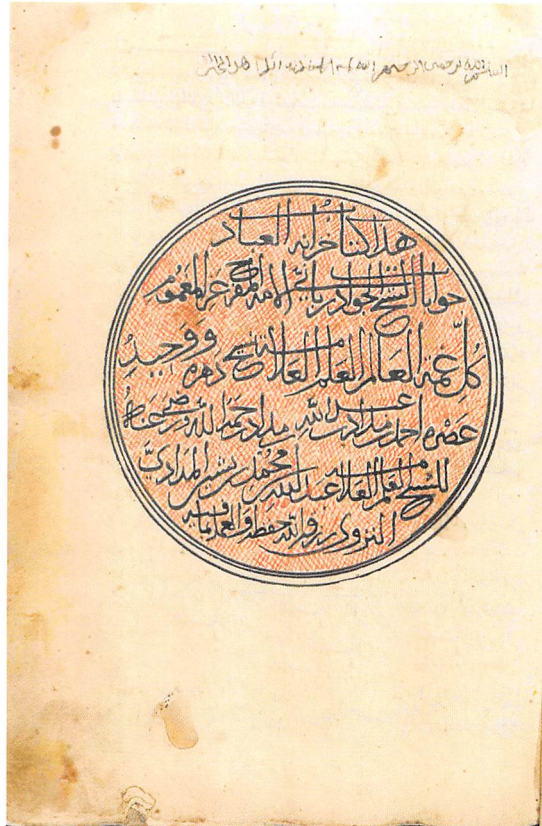 هذا كتاب خزانة العباد
جوابات الشيخ الجواد رباني الامة المفرج عن المغموم
كلّ غمة العالم العلم العلامة نسيج دهره ووحيد
عصره احمد بن مداد بن عبد الله بن مداد رحمه الله ورضي عنه
للشيخ العلم العلامة عبد الله بن محمد بن بشير المدادي
النزوي رزقه الله حفظه والعمل بما فيه